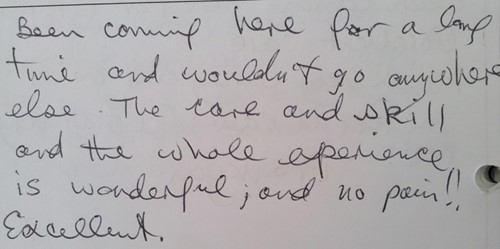 Been coming here for a long
time and wouldn't go anywhere
else. The care and skill
and the whole experience
is wonderful; and no pain!!
Excellent.